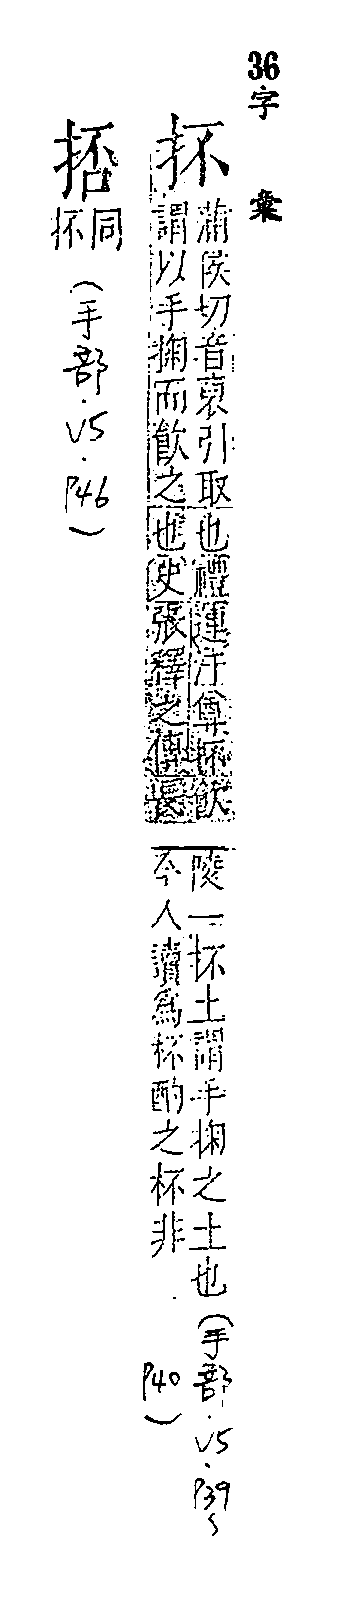 36
字彙
抔
蒲侯切音裒引取也禮運汙尊抔飲
謂以手掬而飲之也史張釋之傳長
陵一抔土謂手掬之土也(手部.V5.P39~
今人讀爲杯酌之杯非
P40)
㧵
同
抔
(手部.V5.P46)